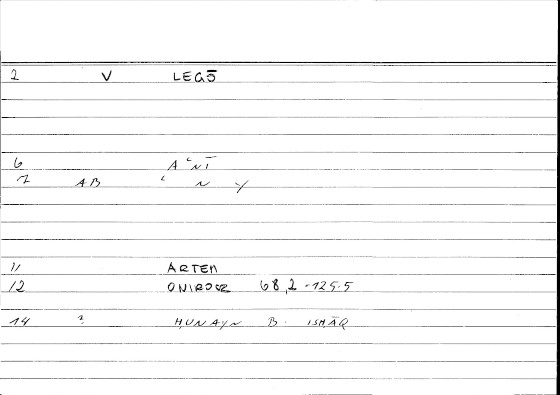 2 V LEGŌ
6 A ʿNĪ
7 AB ʿ N Y
11 ARTEM
12 ONIROCR 68,2-125.5
14 ? ḤUNAYN B. ISḤĀQ